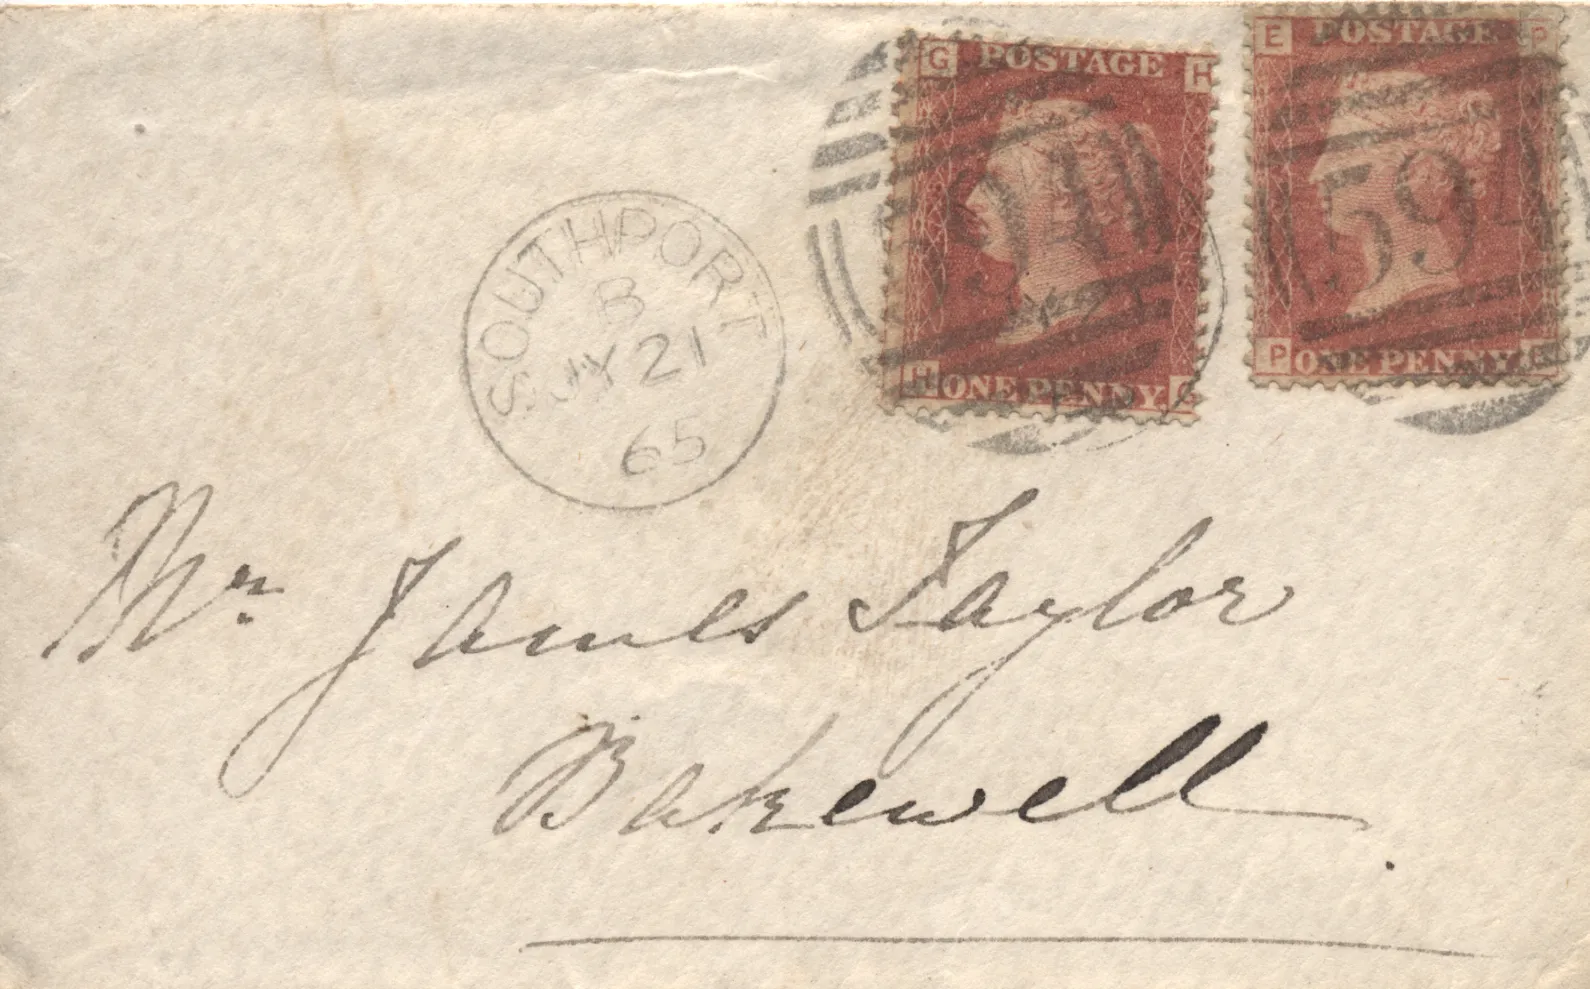 G POSTAGE H
E POSTAGE P
594
594
H ONE PENNY G
P ONE PENNY E
SOUTHPORT
B
JY 21
65
Mr. James Taylor
Bakewell